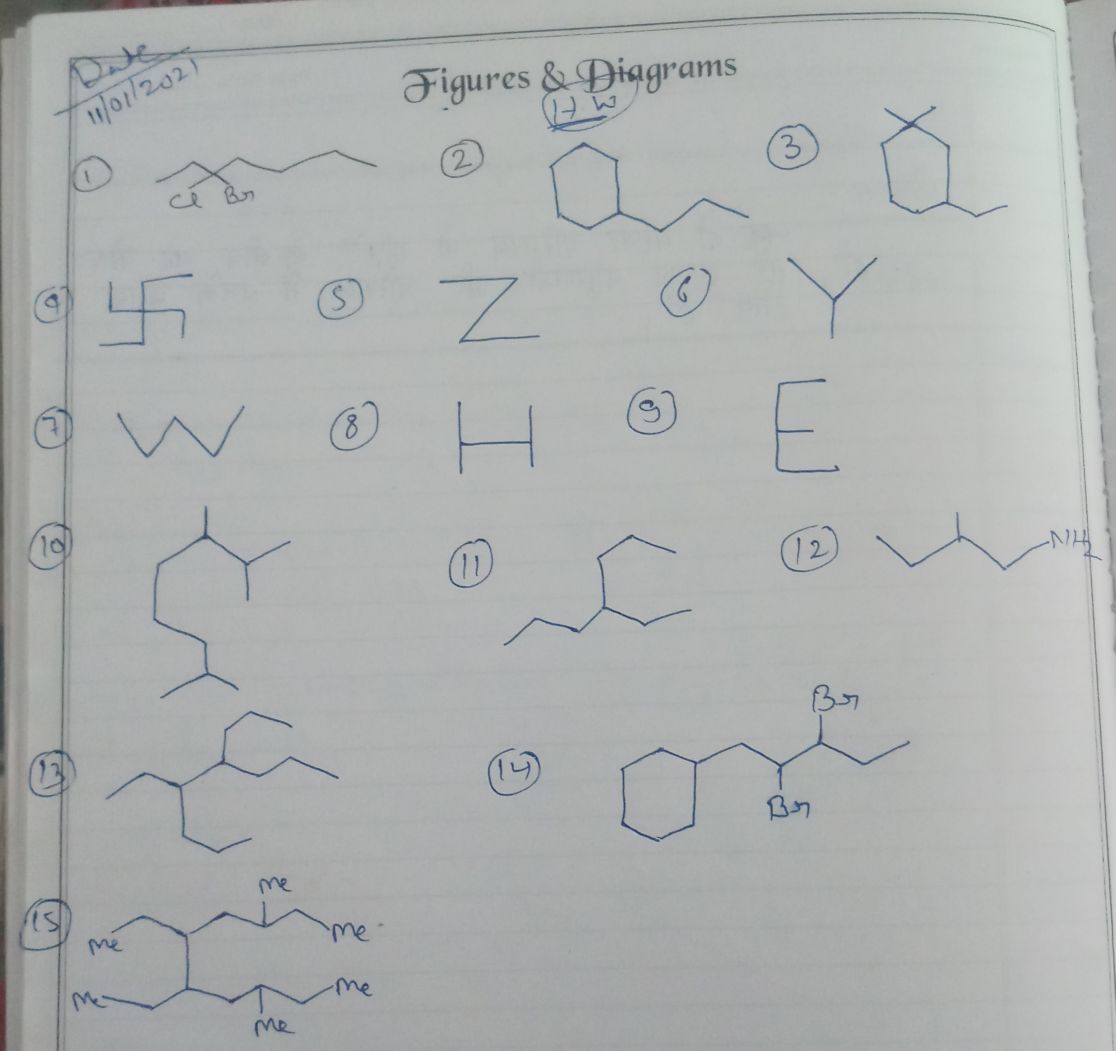 Date
11/01/2021
Figures & Diagrams
H W
1 2 3
Cl Br
4 5 6
7 8 9
10 11 12 NH2
Br
13 14
Br
Me
15
Me Me
Me Me
Me